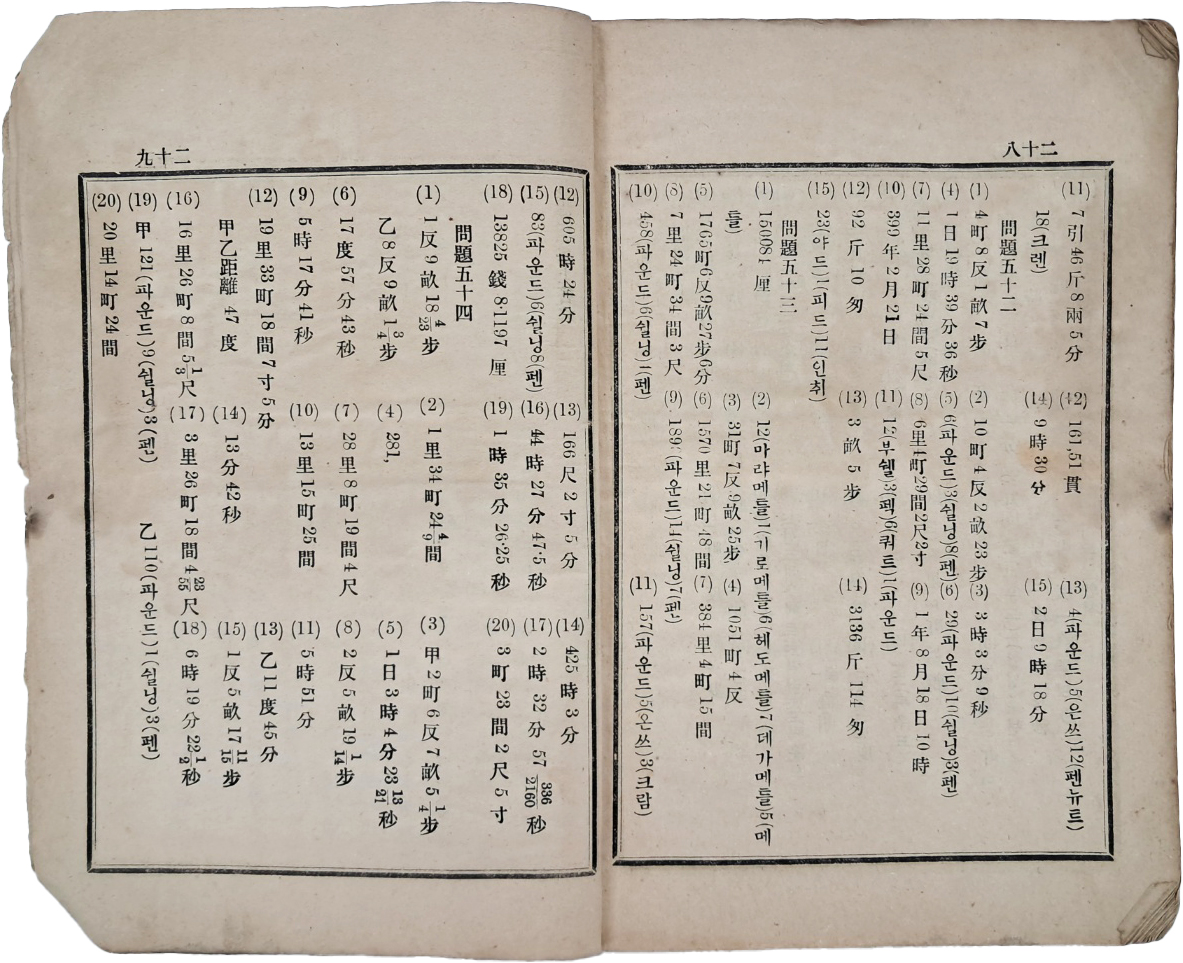 二十八
(11) 7引46斤8兩5分 (12) 161,51貫 (13) 4(파운드)5(온쓰)12(펜뉴트)
18(크렌) (14) 9時30分 (15) 2日9時18分
問題五十二
(1) 4町8反1畝7步 (2) 10町4反2畝23步 (3) 3時3分9秒
(4) 1日19時39分36秒 (5) 6(파운드)3(쉴닝)8(펜) (6) 29(파운드)10(쉴닝)3(펜)
(7) 11里28町24間5尺 (8) 6里4町29間2尺2寸 (9) 1年8月18日10時
(10) 399年2月21日 (11) 12(부쉘)3(펙)6(쿼트)1(파운드)
(12) 92斤10匁 (13) 3畝5步 (14) 3136斤114匁
(15) 23(야드)1(피드)11(인취)
問題五十三
(1) 厘 (2) 12(마랴메틀)1(기로메틀)6(헤도메틀)7(데가메틀)5(메
틀) (3) 31町7反9畝25步 (4) 1051町4反
(5) 1765町6反9畝27步6分 (6) 1570里21町48間 (7) 384里4町15間
(8) 7里24町34間3尺 (9) (파운드)14(쉴닝)7(펜)
(10) 458(파운드)6(쉴닝)1(펜 (11) 157(파운드)5(온쓰)3(크람)
二十九
(12) 605時24分 (13) 166尺2寸5分 (14) 425時3分
(15) 83(파운드)6(쉴닝)8(펜) (16) 44時27分47·5秒 (17) 2時32分57 336/2160秒
(18) 13825錢8·1197厘 (19) 1時35分26·25秒 (20) 3町23間2尺5寸
問題五十四
(1) 1反9畝18 4/23步 (2) 1里34町24 4/9間 (3) 甲2町6反7畝5 1/4步
乙8反9畝1 3/4步 (4) 281, (5) 1日3時4分23 13/21秒
(6) 17度57分43秒 (7) 28里8町19間4尺 (8) 2反5畝19 1/14步
(9) 5時17分41秒 (10) 13里15町25間 (11) 5時51分
(12) 19里33町18間7寸5分 (13) 乙11度45分
甲乙距離 47度 (14) 13分42秒 (15) 1反5畝17 11/15步
(16) 16里26町8間5 1/3尺 (17) 3里26町18間4 23/55尺 (18) 6時19分22 1/2秒
(19) 甲121(파운드)9(쉴닝)3(펜) 乙110(파운드)1(쉴닝)3(펜)
(20) 20里14町24間